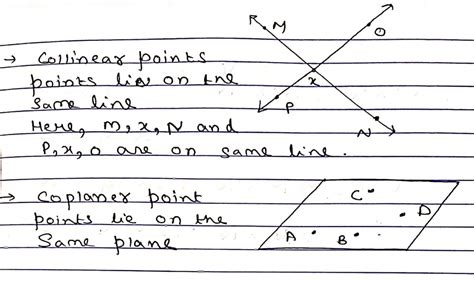 → Collinear points
points lie on the
same line
Here, M, x, N and
P, x, O are on same line.
M
O
x
P
N
→ Coplaner point
points lie on the
Same plane
C
D
A
B